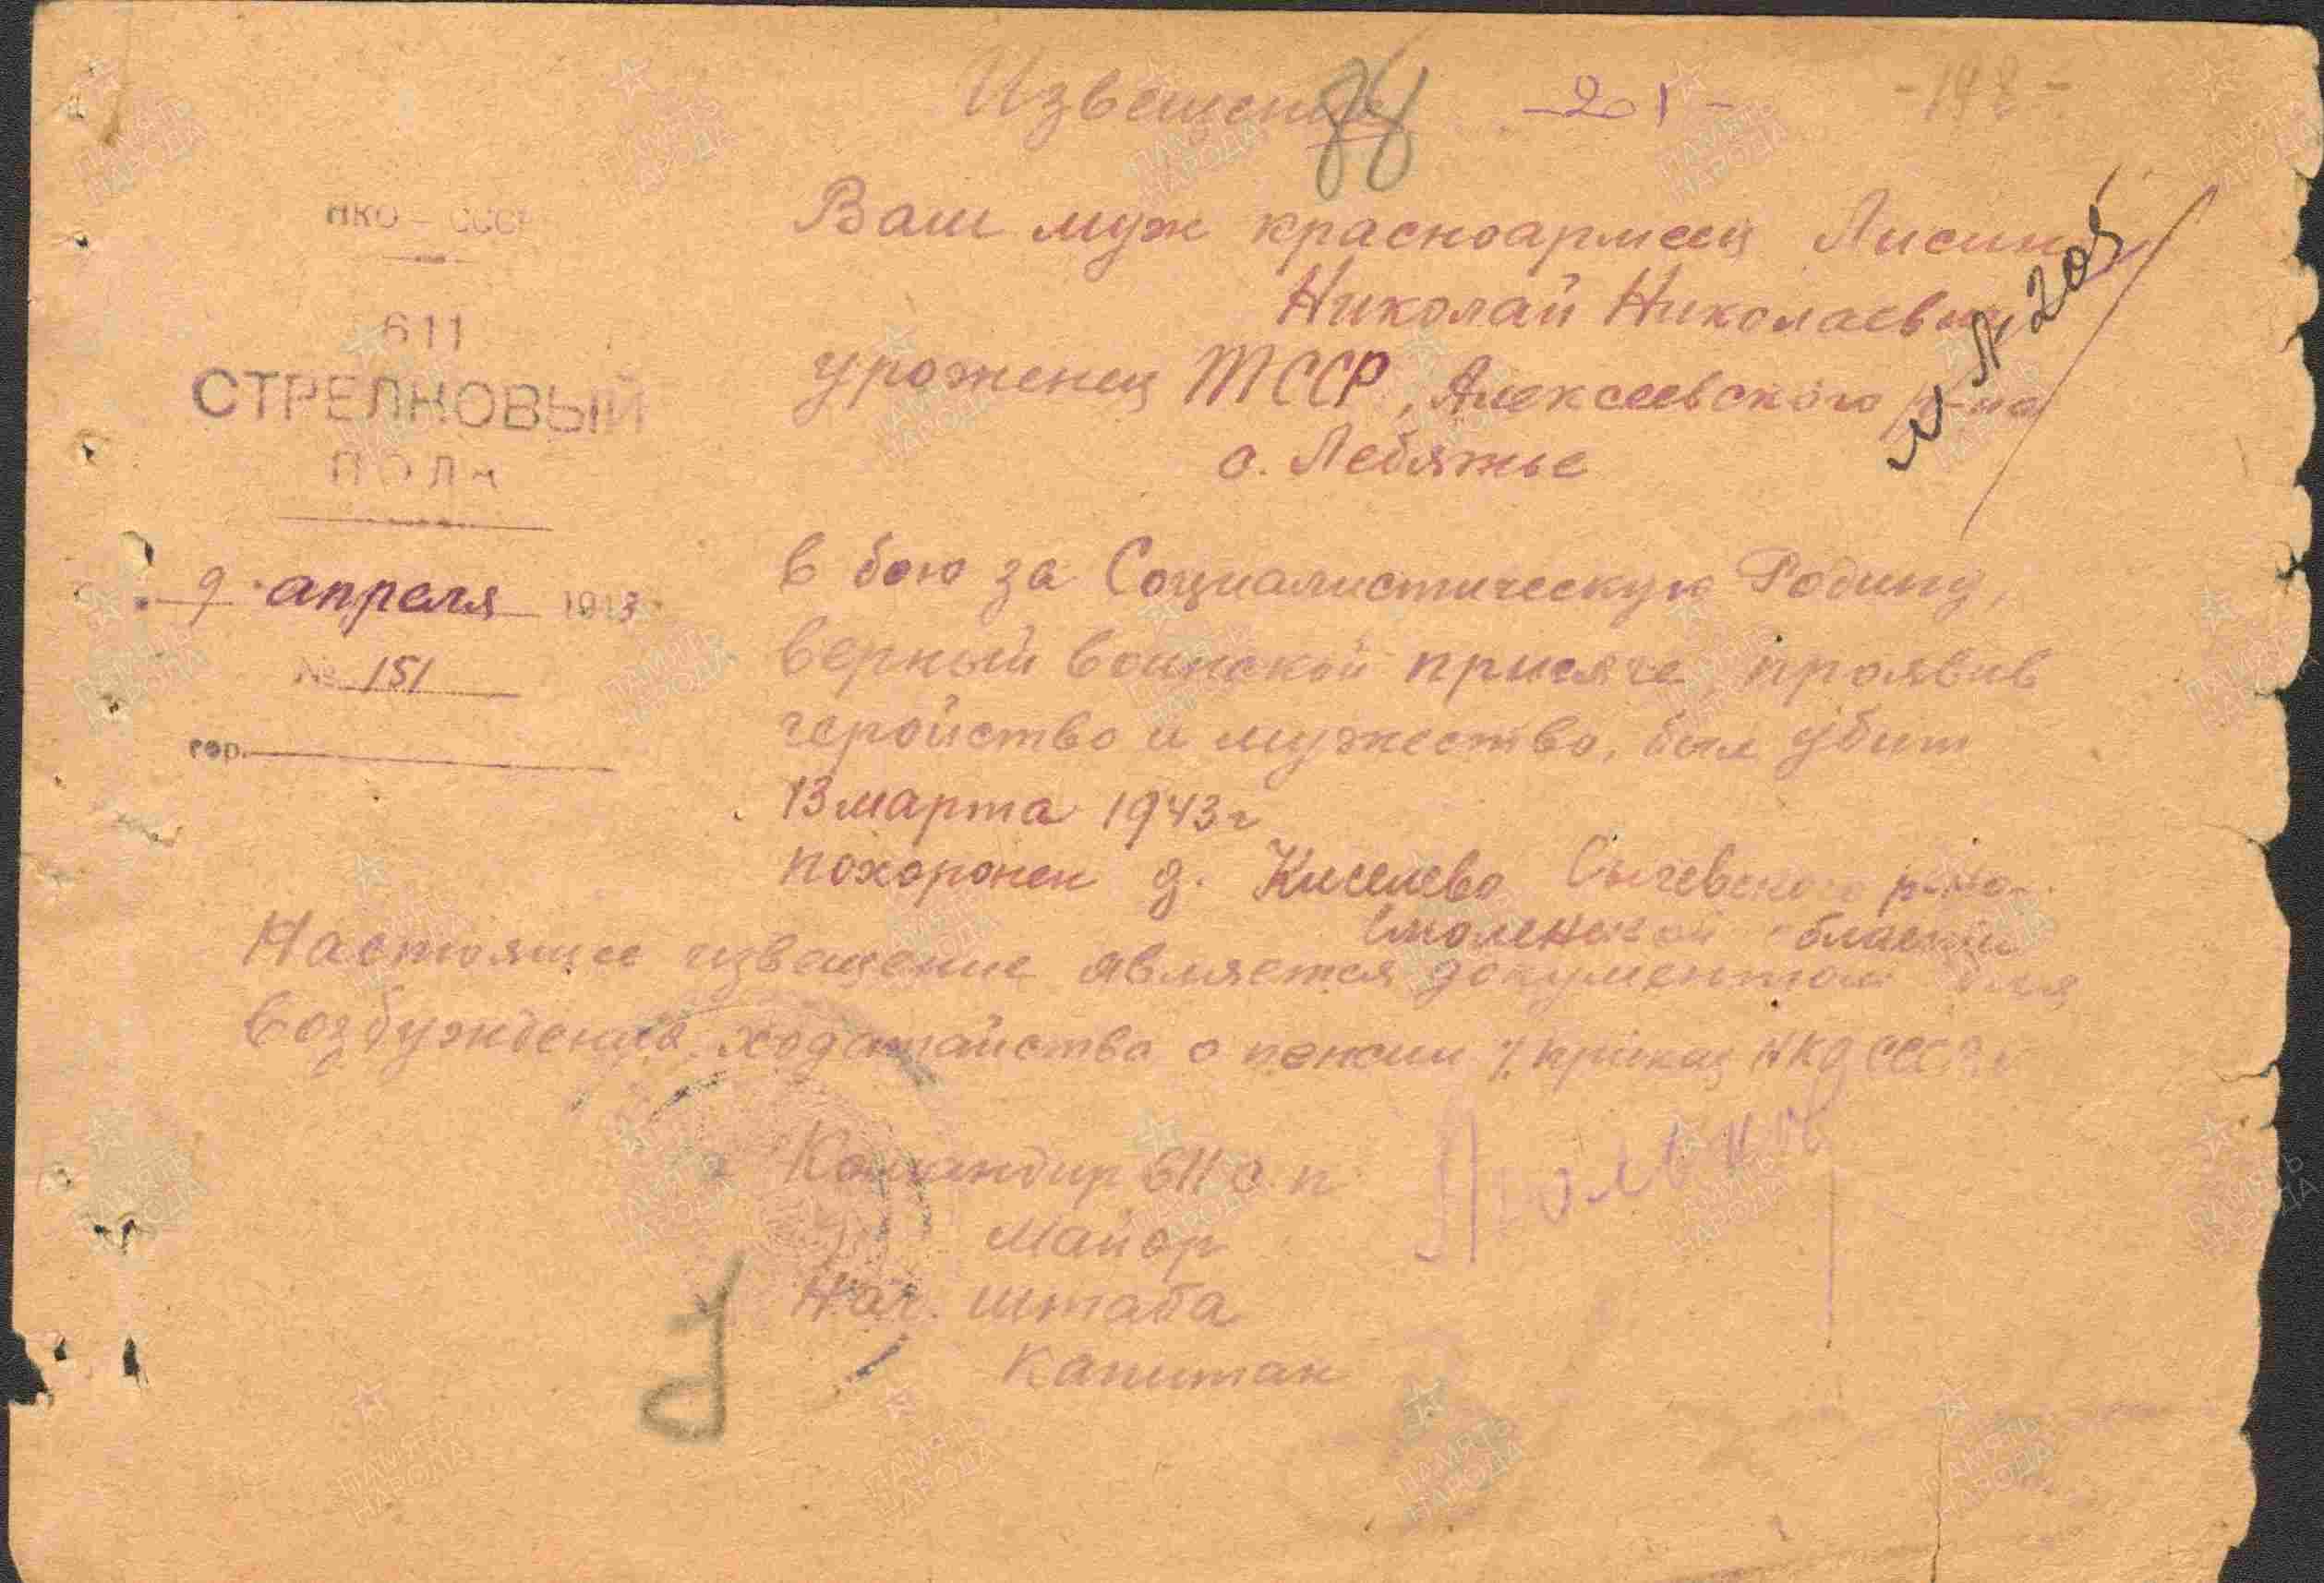 Извещение
88
-201-
-198-
НКО - СССР
611
СТРЕЛКОВЫЙ
ПОЛК
9 апреля 1943
№ 151
гор.
Ваш муж красноармеец Лисин
Николай Николаевич
уроженец ТССР, Алексеевского р-на
с. Лебяжье
в бою за Социалистическую Родину,
верный воинской присяге, проявив
геройство и мужество, был убит
13 марта 1943 г
похоронен д. Киселево Сычевского р-на
Смоленской области
Настоящее извещение является документом для
возбуждения ходатайства о пенсии /приказ НКО СССР
Командир 611 с п
Майор
Нач. штаба
Капитан
ПАМЯТЬ НАРОДА